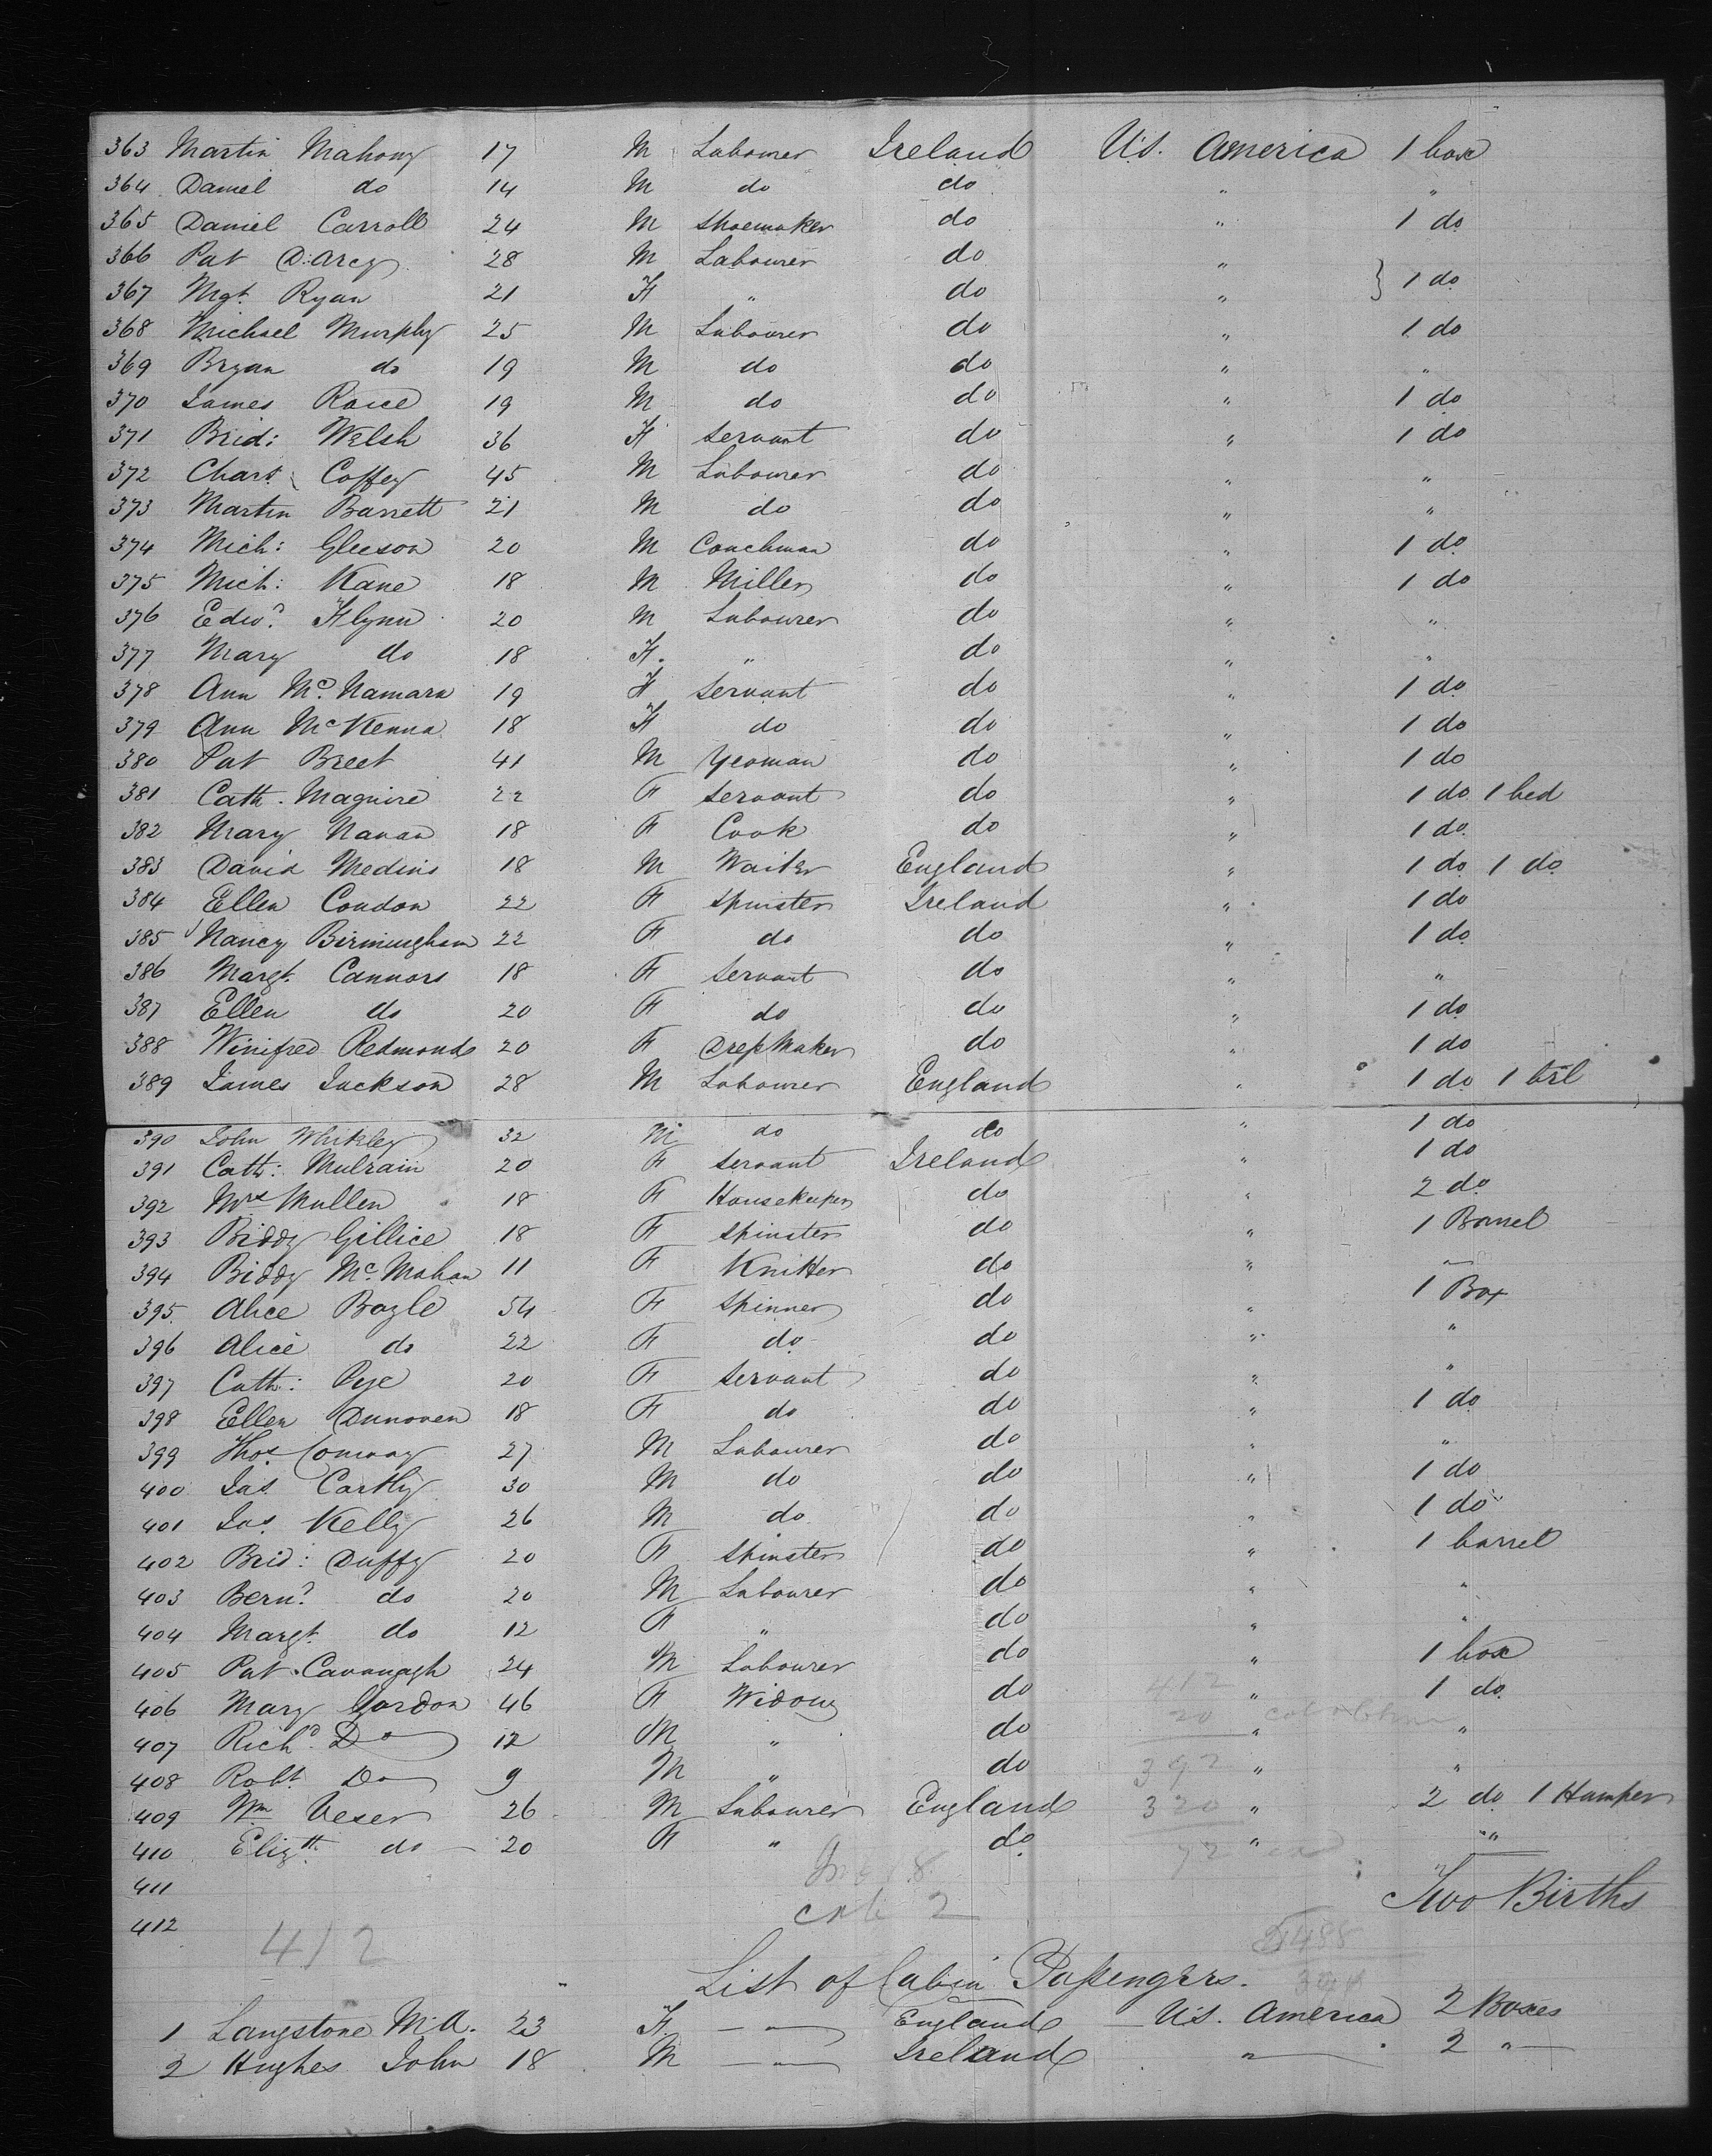 363 Martin Mahony 17 M Labourer Ireland U.S. America 1 box
364 Daniel do 14 M do do " "
365 Daniel Carroll 24 M Shoemaker do " 1 do
366 Pat D'arcy 28 M Labourer do "
367 Mgt. Ryan 21 F " do " } 1 do
368 Michael Murphy 25 M Labourer do " 1 do
369 Bryan do 19 M do do " "
370 James 19 M do do " 1 do
371 Brid: Welsh 36 F Servant do " 1 do
372 Chars. Coffey 45 M Labourer do " "
373 Martin Barrett 21 M do do " "
374 Mich: Gleeson 20 M Coachman do " 1 do
375 Mich: Kane 18 M Miller do " 1 do
376 Edwd. Flynn 20 M Labourer do " "
377 Mary do 18 F. " do " "
378 Ann Mc. Namara 19 F Servant do " 1 do
379 Ann McKenna 18 F do do " 1 do
380 Pat Breet 41 M Yeoman do " 1 do
381 Cath. Maguire 22 F Servant do " 1 do 1 bed
382 Mary Navan 18 F Cook do " 1 do
383 David Medins 18 M Waiter England " 1 do 1 do
384 Ellen Condon 22 F Spinster Ireland " 1 do
385 Nancy Birmingham 22 F do do " 1 do
386 Margt. Cannors 18 F Servant do " "
387 Ellen do 20 F do do " 1 do
388 Winifred Redmonds 20 F DressMaker do " 1 do
389 James Jackson 28 M Labourer England " 1 do 1 brl
390 John Whikley 32 M do do " 1 do
391 Cath: Mulrain 20 F Servant Ireland " 1 do
392 Mrs Mullen 18 F Housekeeper do " 2 do
393 Biddy Gillice 18 F Spinster do " 1 Barrel
394 Biddy Mc. Mahan 11 F Knitter do " "
395 Alice Boyle 54 F Spinner do " 1 Box
396 Alice do 22 F do do " "
397 Cath: Pye 20 F Servant do " "
398 Ellen Dunnoven 18 F do do " 1 do
399 Thos. Conway 27 M Labourer do " "
400 Jas. Carthy 30 M do do " 1 do
401 Jas. Kelly 26 M do do " 1 do
402 Brid: Duffy 20 F Spinster do " 1 barrel
403 Bernd. do 20 M Labourer do " "
404 Margt. do 12 F " do " "
405 Pat. Cavanagh 24 M Labourer do " 1 box
406 Mary Gordon 46 F Widow do 412 " 1 do
407 Richd. Do 12 M " do 20 " "
408 Robt. Do 9 M " do 392 " "
409 Wm Veser 26 M Labourer England 320 " 2 do 1 Hamper
410 Elizth. do 20 F " do 72 " "
411 Two Births
412
412
List of Cabin Passengers.
1 Langstone M.A. 23 F. — " — England — U.S. America 2 Boxes
2 Hughes John 18 M — " — Ireland " 2 "